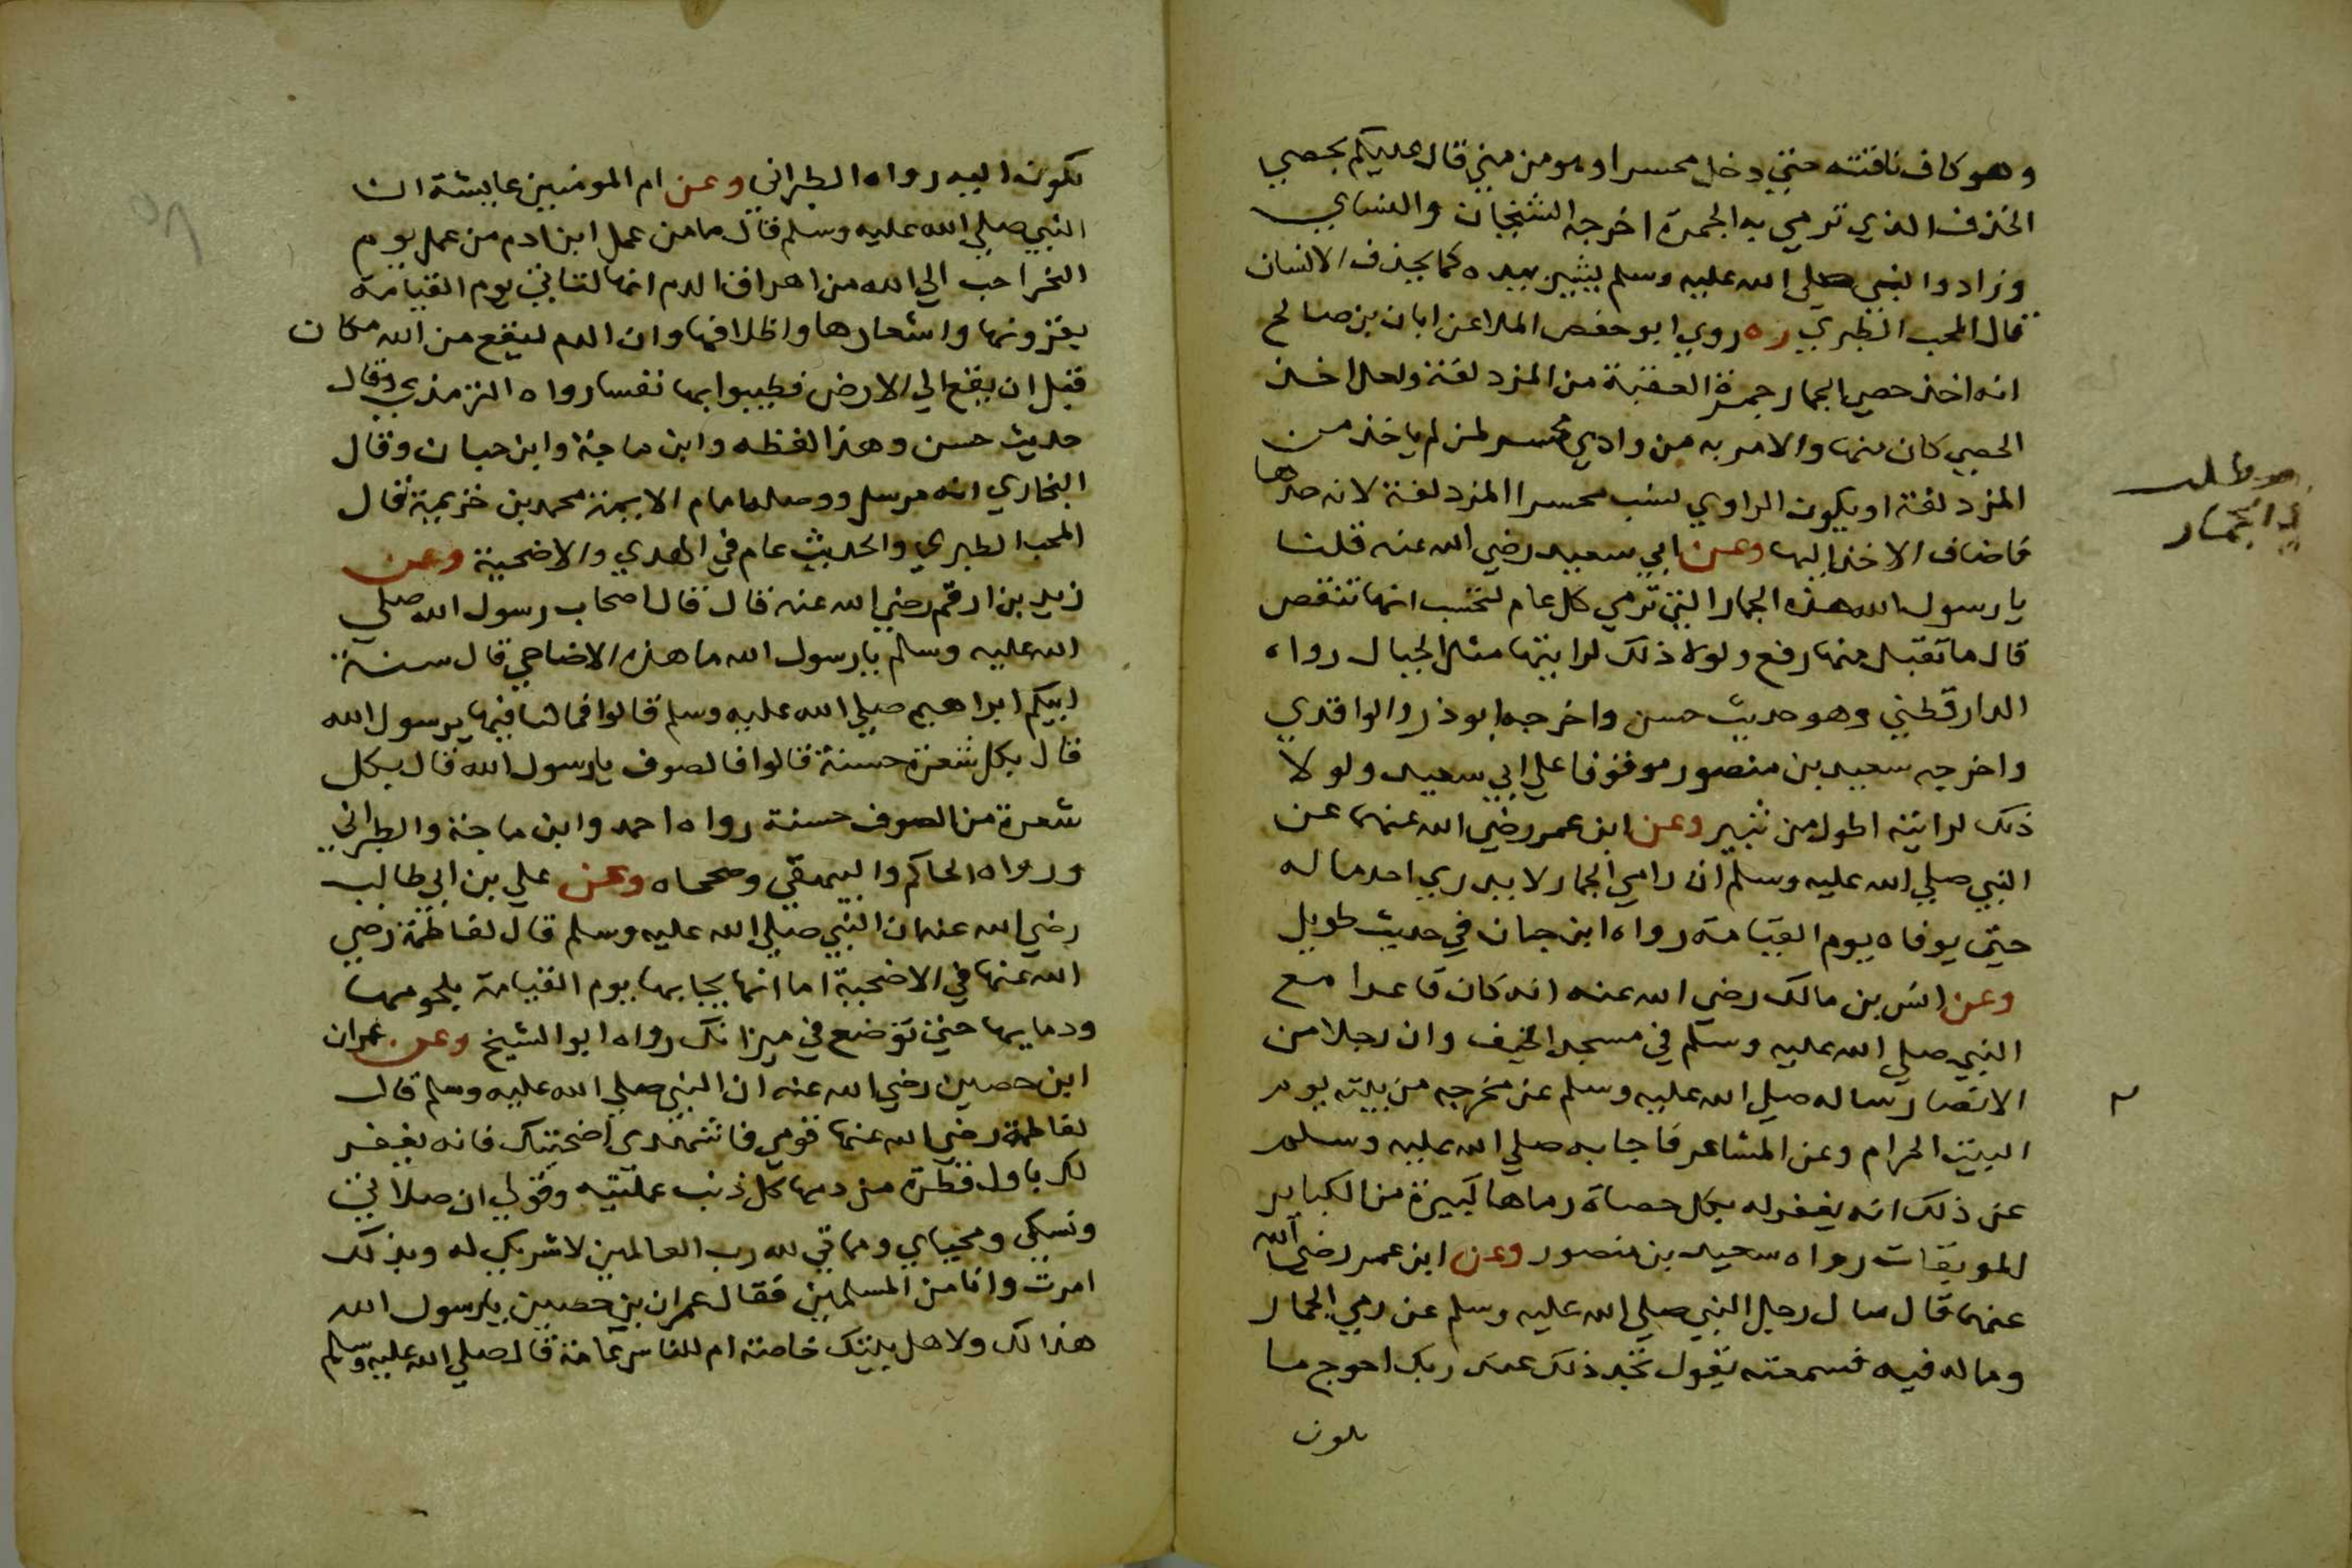 وهو كاف ناقته حتي دخل محسرا وهو من مني قال عليكم بحصي
الخذف الذي ترمي به الجمرة اخرجه الشيخان والنساي
وزادوا النبي صلى الله عليه وسلم يشير بيده كما يخذف الانسان
قال المحب الطبري ره روي ابو حفص الملا عن ابان بن صالح
انه اخذ حصي الجمار جمرة العقبة من المزدلفة ولعل اخذ
الحصي كان منها والامر به من وادي محسر لمن لم ياخذ من
المزدلفة او يكون الراوي نسب محسرا المزدلفة لانه حدها
فاضاف الاخذ اليها وعن ابي سعيد رضي الله عنه قلنا
يا رسول الله هذه الجمار التي ترمي كل عام نحتسب انها تنقص
قال ما تقبل منها رفع ولولا ذلك لرايتها مثل الجبال رواه
الدارقطني وهو حديث حسن واخرجه ابو ذر والواقدي
واخرجه سعيد بن منصور موقوفا علي ابي سعيد ولولا
ذلك لرايته اطول من ثبير وعن ابن عمر رضي الله عنهما عن
النبي صلي الله عليه وسلم ان رامي الجمار لا يدري احد ما له
حتي يوفاه يوم القيامة رواه ابن حبان في حديث طويل
وعن انس بن مالك رضي الله عنه انه كان قاعدا مع
النبي صلي الله عليه وسلم في مسجد الخيف وان رجلا من
الانصار ساله صلي الله عليه وسلم عن مخرجه من بيته يوم
البيت الحرام وعن المشاعر فاجابه صلي الله عليه وسلم
عن ذلك انه يغفر له بكل حصاة رماها كبيرة من الكباير
الموبقات رواه سعيد بن منصور وعن ابن عمر رضي الله
عنهما قال سال رجل النبي صلي الله عليه وسلم عن رمي الجمار
وما له فيه فسمعته يقول تجد ذلك عند ربك احوج ما
مطلب
في الجمار
تكون
تكون اليه رواه الطبراني وعن ام المومنين عايشة ان
النبي صلي الله عليه وسلم قال ما من عمل ابن ادم من عمل يوم
النحر احب الي الله من اهراق الدم انها لتاتي يوم القيامة
بقرونها واشعارها واظلافها وان الدم ليقع من الله مكان
قبل ان يقع الي الارض فطيبوا بها نفسا رواه الترمذي وقال
حديث حسن وهذا لفظه وابن ماجة وابن حبان وقال
البخاري انه مرسل ووصله امام الايمة محمد بن خزيمة قال
المحب الطبري والحديث عام في الهدي والاضحية وعن
زيد بن ارقم رضي الله عنه قال قال اصحاب رسول الله صلي
الله عليه وسلم يا رسول الله ما هذه الاضاحي قال سنة
ابيكم ابراهيم صلي الله عليه وسلم قالوا فما لنا فيها يرسول الله
قال بكل شعرة حسنة قالوا فالصوف يا رسول الله قال بكل
شعرة من الصوف حسنة رواه احمد وابن ماجة والطبراني
ورواه الحاكم والبيهقي وصححاه وعن علي بن ابي طالب
رضي الله عنه ان النبي صلي الله عليه وسلم قال لفاطمة رضي
الله عنها في الاضحية اما انها يجا بها يوم القيامة بلحومها
ودمايها حتي توضع في ميزانك رواه ابو الشيخ وعن عمران
ابن حصين رضي الله عنه ان النبي صلي الله عليه وسلم قال
لفاطمة رضي الله عنها قومي فاشهدي اضحيتك فانه يغفر
لك باول قطرة من دمها كل ذنب عملتيه وقولي ان صلاتي
ونسكي ومحياي ومماتي لله رب العالمين لا شريك له وبذلك
امرت وانا من المسلمين فقال عمران بن حصين يا رسول الله
هذا لك ولاهل بيتك خاصة ام للناس عامة قال صلي الله عليه وسلم